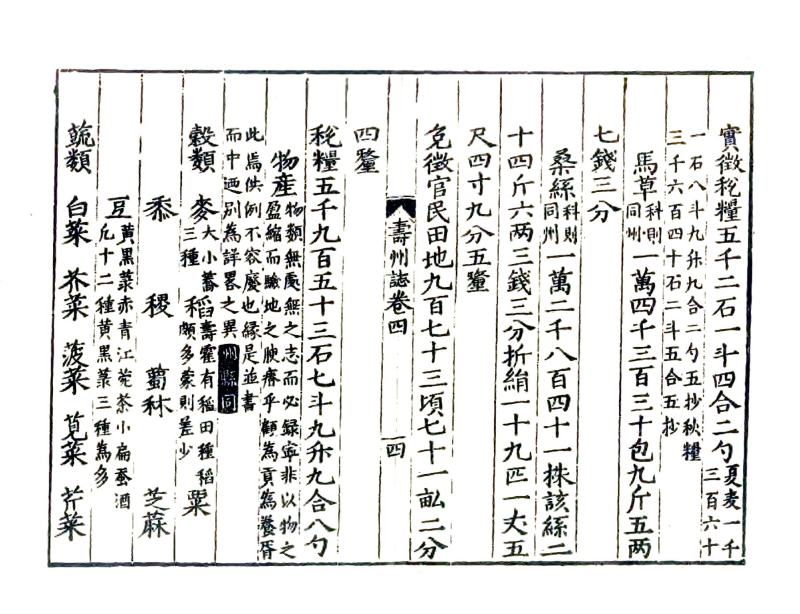 實徵稅糧五千二石一斗四合二勺夏麦一千三百六十
一石八斗九升九合二勺五抄秋糧
三千六百四十石二斗五合五抄
馬草科則同州一萬四千三百三十包九斤五两
七錢三分
桑絲科則同州一萬二千八百四十一株該絲二
十四斤六两三錢三分折絹一十九匹一丈五
尺四寸九分五釐
壽州誌卷四
一四
免徵官民田地九百七十三頃七十一畝二分
四釐
稅糧五千九百五十三石七斗九升九合八勺
物産物類無處無之志而必録寜非以物之
盈縮而驗地之腴瘠乎顧為貢為養胥
此焉供例不容廢也縁是並書
而中迺别為詳畧之異州縣同
糓類 麥大小蕎三種 稻壽霍有稻田種稻頗多蒙則差少 粟
黍 稷 薥秫 芝蔴
豆黄黑菉赤青江菀茶小扁蚕酒
凢十二種黄黑菉三種為多
蔬類 白菜 芥菜 菠菜 莧菜 芹菜